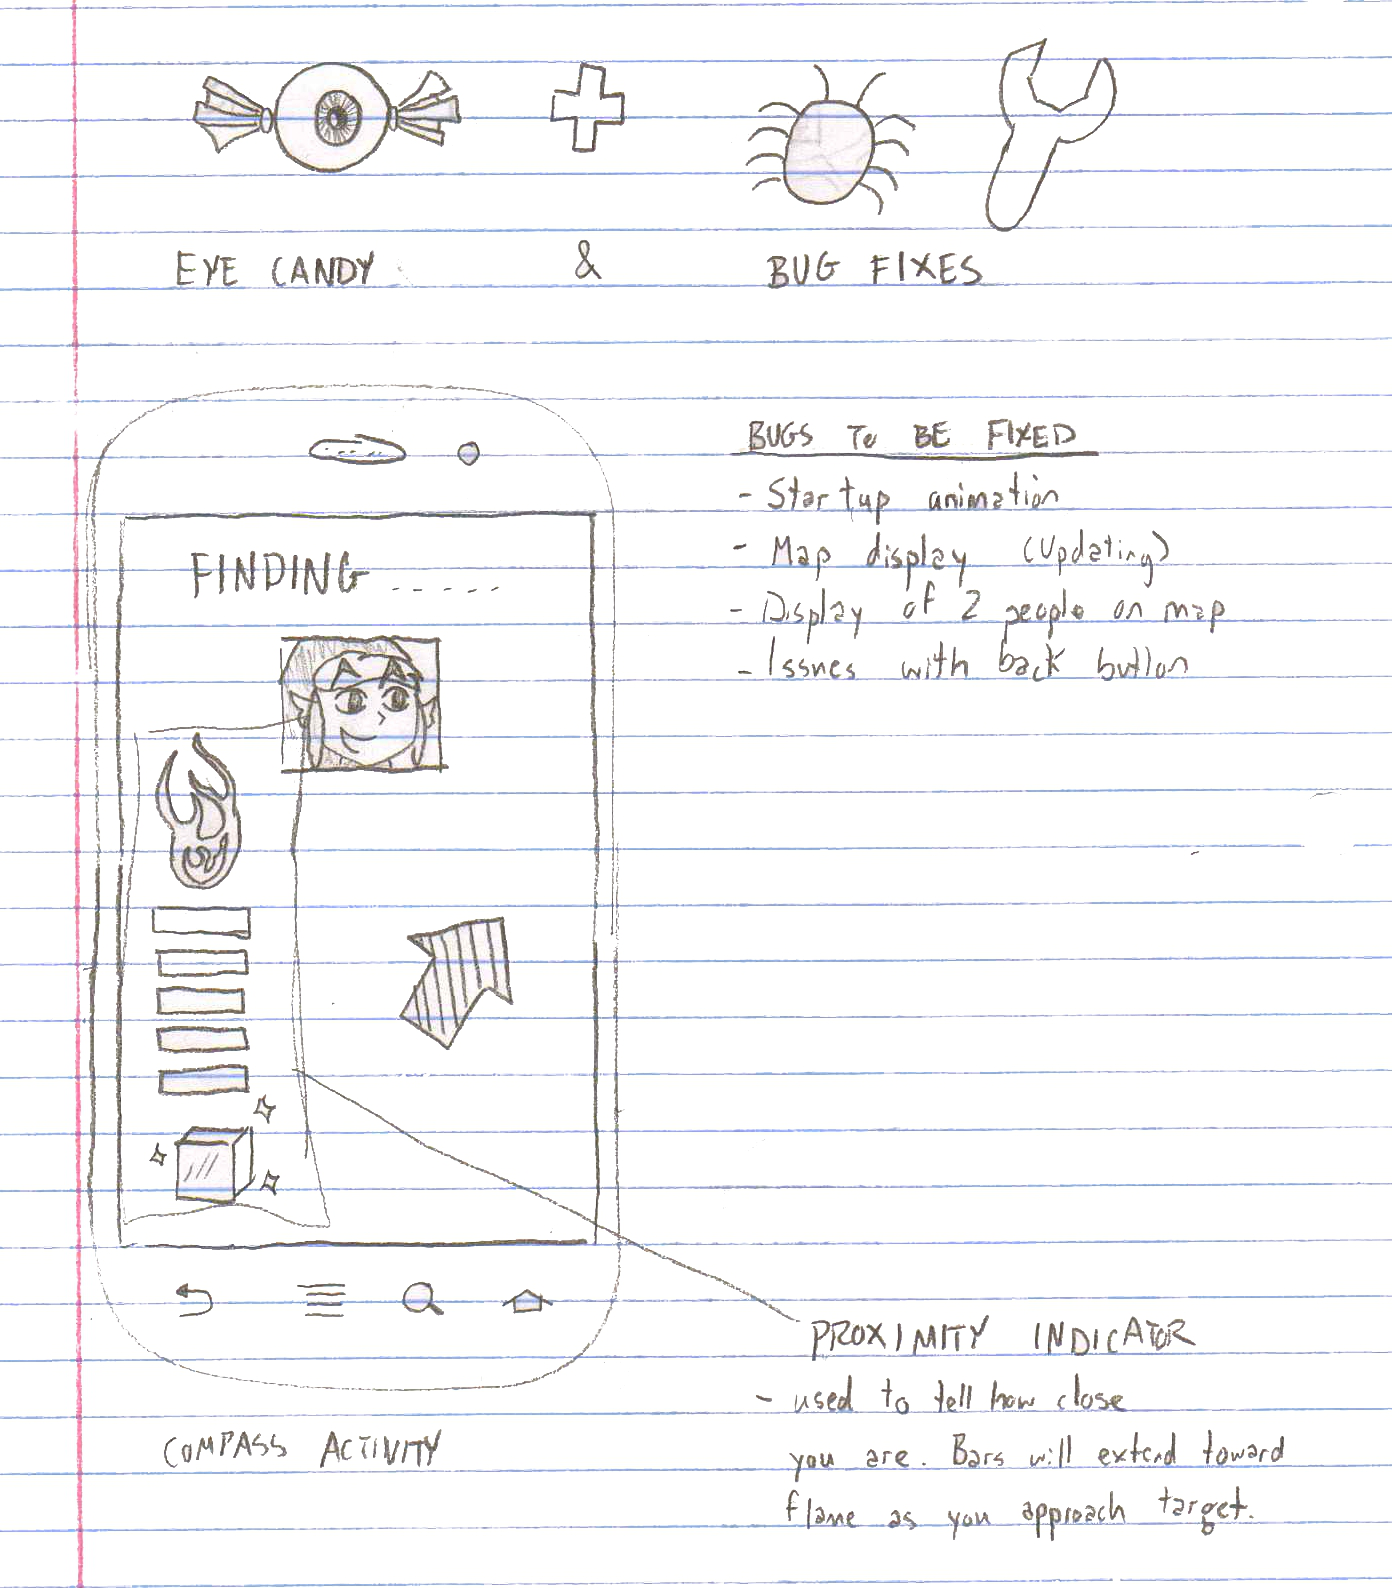 EYE CANDY & BUG FIXES
BUGS To BE FIXED
- Startup animation
- Map display (Updating)
- Display of 2 people on map
- Issues with back button
FINDING ------
PROXIMITY INDICATOR
- used to tell how close
you are. Bars will extend toward
flame as you approach target.
COMPASS ACTIVITY